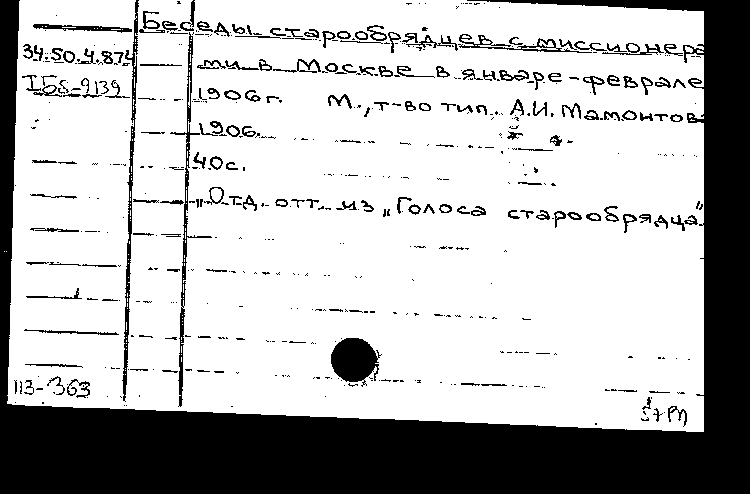 Беседы старообрядцев с миссионера
34.50.4.874
ми в Москве в январе-феврале
IБ5-9139
1906г. М., т-во тип. А.И. Мамонтова
1906.
40с.
„Отд. отт. из „Голоса старообрядца"
113-363